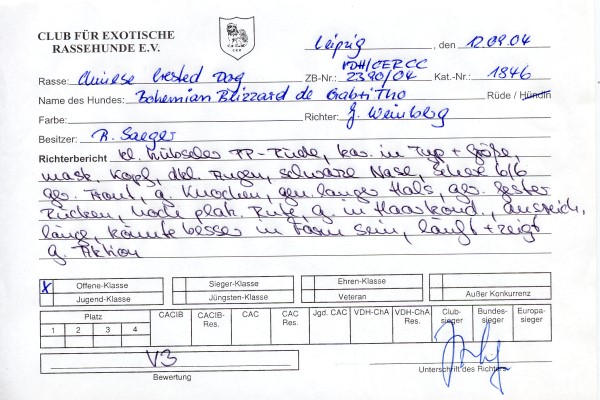 CLUB FÜR EXOTISCHE
RASSEHUNDE E.V.
Leipzig, den 12.09.04
VDH/CER CC
Rasse: Chinese Crested Dog ZB-Nr.: 2390/04 Kat.-Nr.: 1846
Name des Hundes: Bohemian Blizzard de Gabritho Rüde / Hündin
Farbe: Richter: J. Weinberg
Besitzer: R. Saeger
Richterbericht kl. hübscher PP-Rüde, kor. in Typ + Größe,
mask. Kopf, dkl. Augen, schwarze Nase, Schere 6/6
ger. Front, g. Knochen, gen. langer Hals, ger. fester
Rücken, hoch plac. Rute, g. in Haarkond., ausreich.
länge, könnte besser in Form sein, läuft + zeigt
g. Aktion
X Offene-Klasse Sieger-Klasse Ehren-Klasse
Jugend-Klasse Jüngsten-Klasse Veteran Außer Konkurrenz
Platz CACIB CACIB-Res. CAC CAC Res. Jgd. CAC VDH-ChA VDH-ChA Res. Club-sieger Bundes-sieger Europa-sieger
1 2 3 4
V3
Bewertung
Unterschrift des Richters